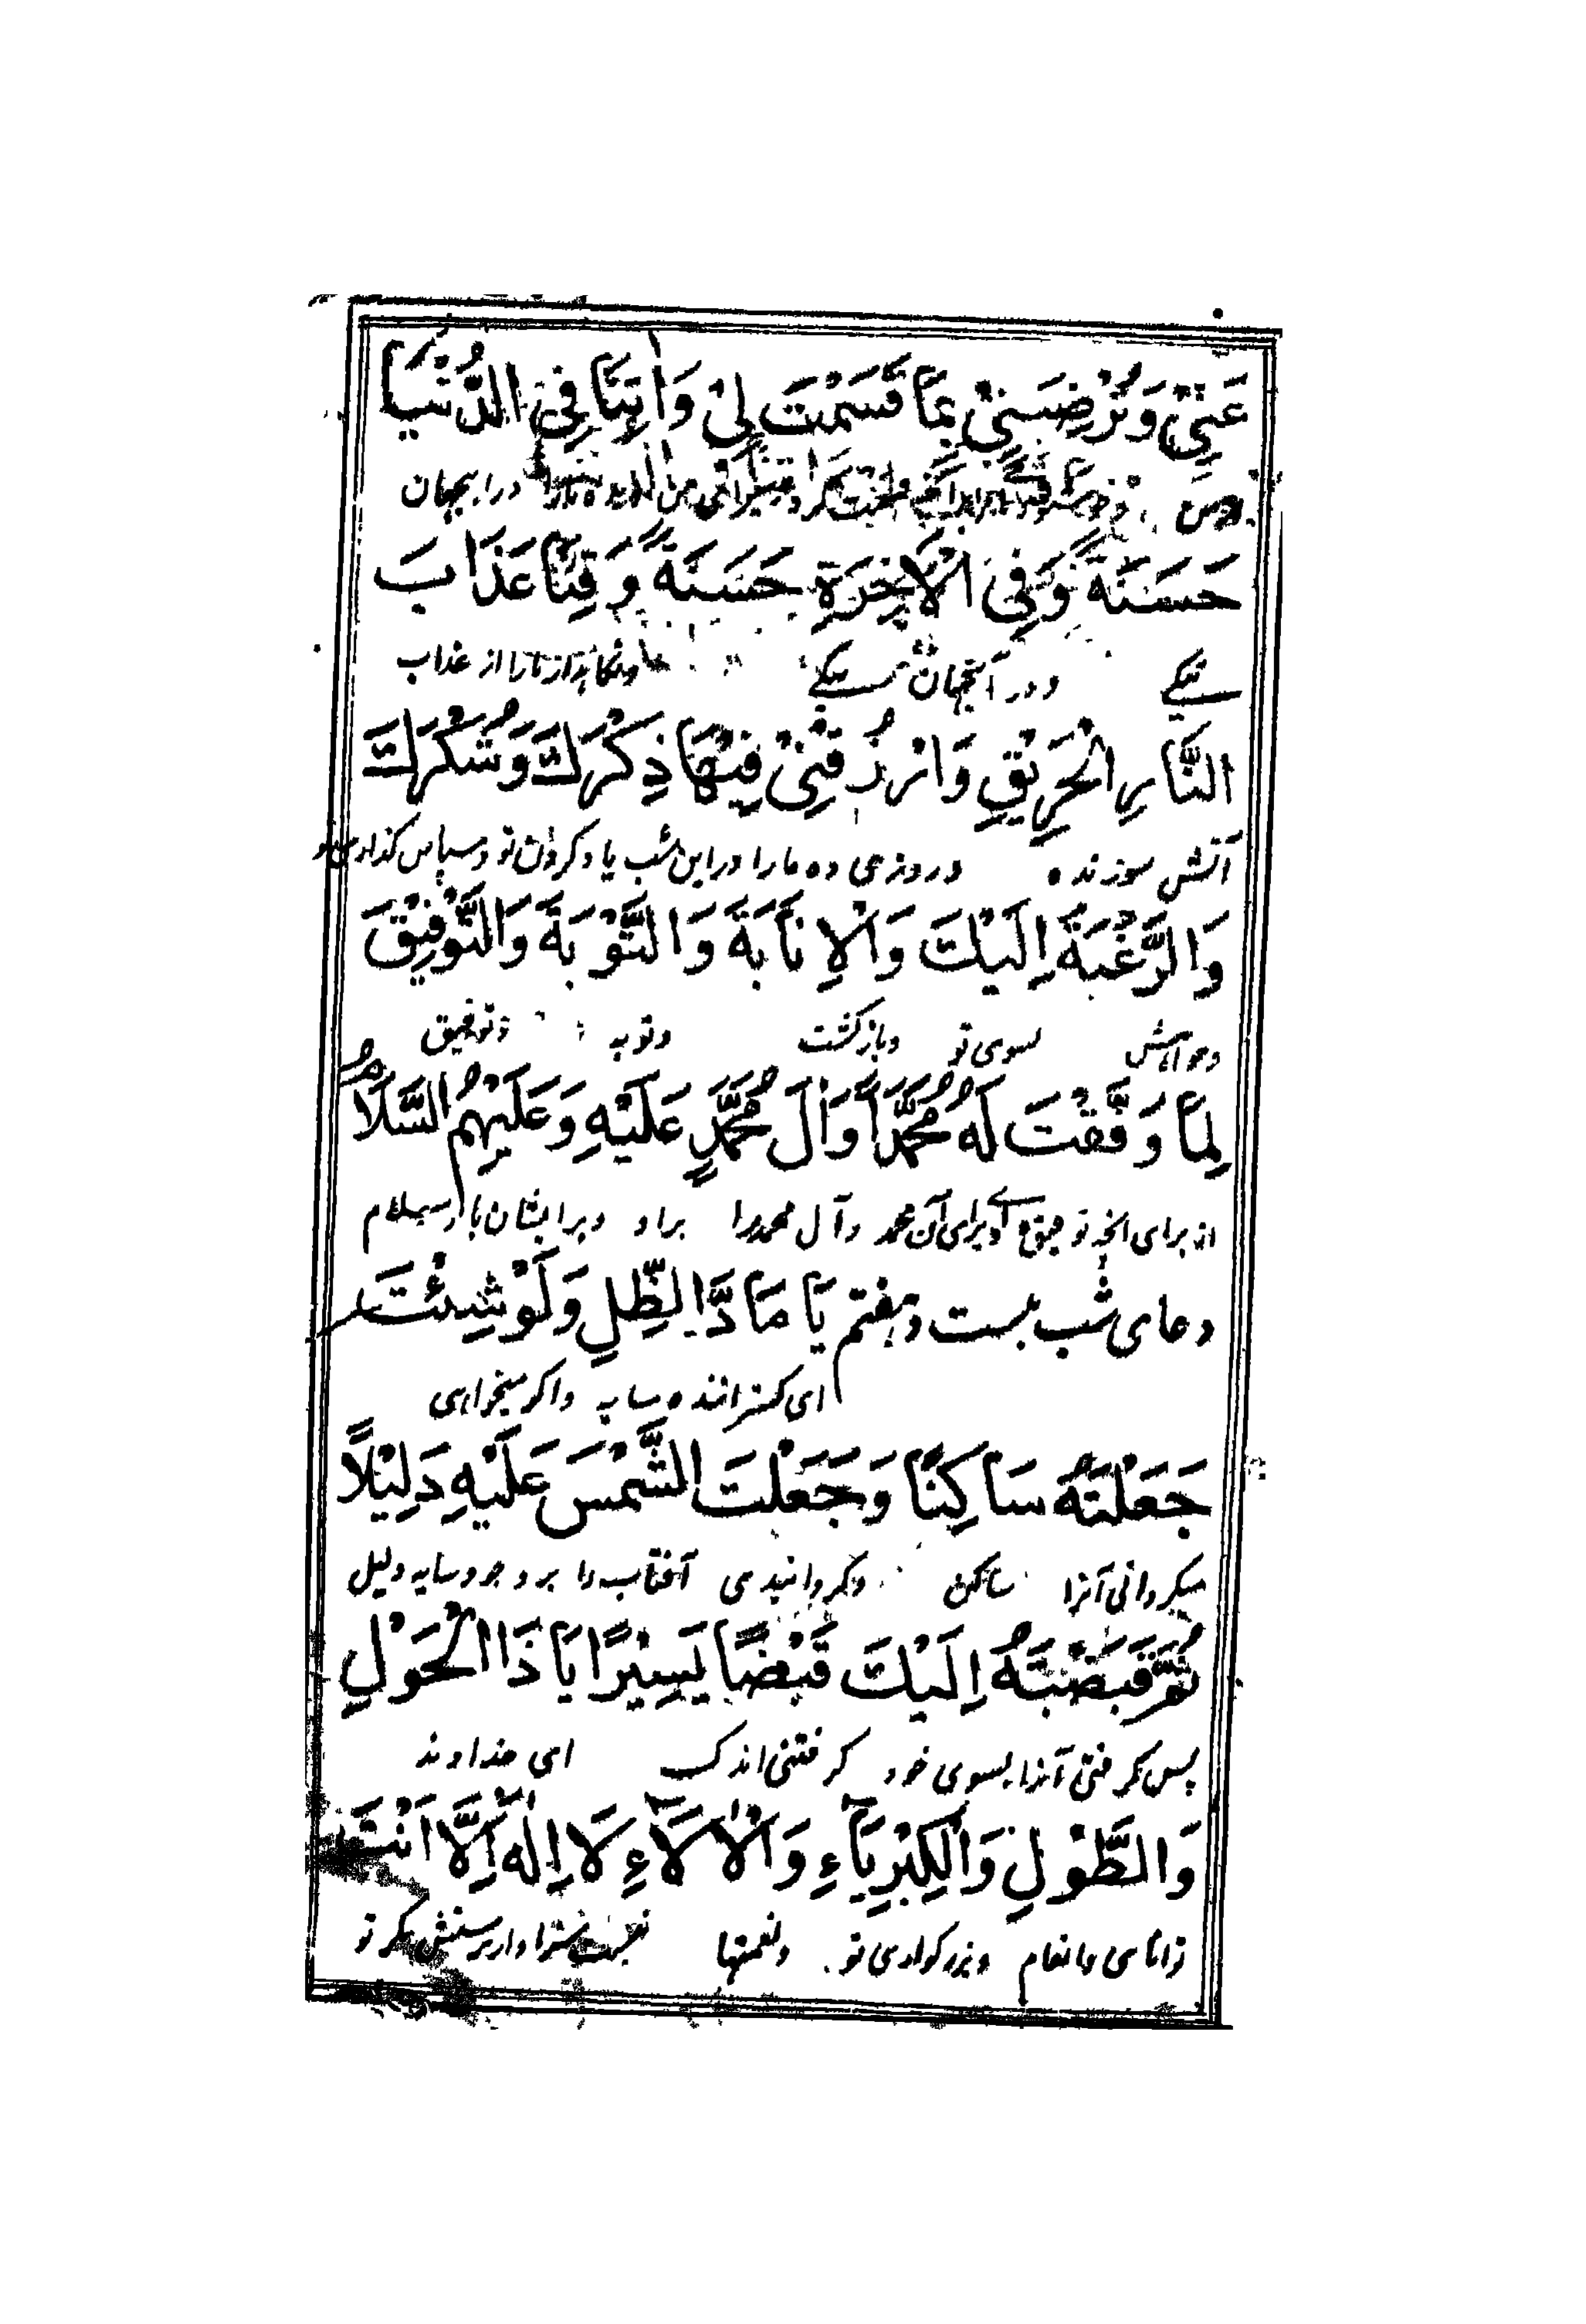 عَنِّيْ وَتُرْضِيَنِيْ بِمَا قَسَمْتَ لِيْ وَاٰتِنَا فِي الدُّنْيَا
درابنجهان
حَسَنَةً وَّفِي الْاٰخِرَةِ حَسَنَةً وَّقِنَا عَذَابَ
نیکے ودر آنجهان نیکے ونگاهدار مارا از عذاب
النَّارِ الْحَرِيْقِ وَارْزُقْنِيْ فِيْهَا ذِكْرَكَ وَشُكْرَكَ
آتش سوزنده وروزی ده مارا دراین شب یاد کردن تو وسپاس گذاری تو
وَالرَّغْبَةَ اِلَيْكَ وَالْاِنَابَةَ وَالتَّوْبَةَ وَالتَّوْفِيْقَ
وخواهش بسوی تو وبازگشت وتوبه وتوفیق
لِمَا وَفَّقْتَ لَهُ مُحَمَّدًا وَّاٰلَ مُحَمَّدٍ عَلَيْهِ وَعَلَيْهِمُ السَّلَامُ
از برای آنچه توفیق برای آن محمد وآل محمد را براو وبرایشان باد سلام
دعای شب بست وهفتم يَا مَادَّ الظِّلِّ وَلَوْ شِئْتَ
ای گستراننده سایه واگر میخواهی
جَعَلْتَهُ سَاكِنًا وَجَعَلْتَ الشَّمْسَ عَلَيْهِ دَلِيْلًا
میگردانی آنرا ساکن وگردانیدی آفتاب را بر وجود سایه دلیل
ثُمَّ قَبَضْتَهُ اِلَيْكَ قَبْضًا يَسِيْرًا يَا ذَا الْحَوْلِ
پس گرفتی آنرا بسوی خود گرفتنی اندک ای خداوند
وَالطَّوْلِ وَالْكِبْرِيَآءِ وَالْاٰلَآءِ لَا اِلٰهَ اِلَّا اَنْتَ
وانعام وبزرگواری تو ونعمتها نیست سزاوار پرستش مگر تو